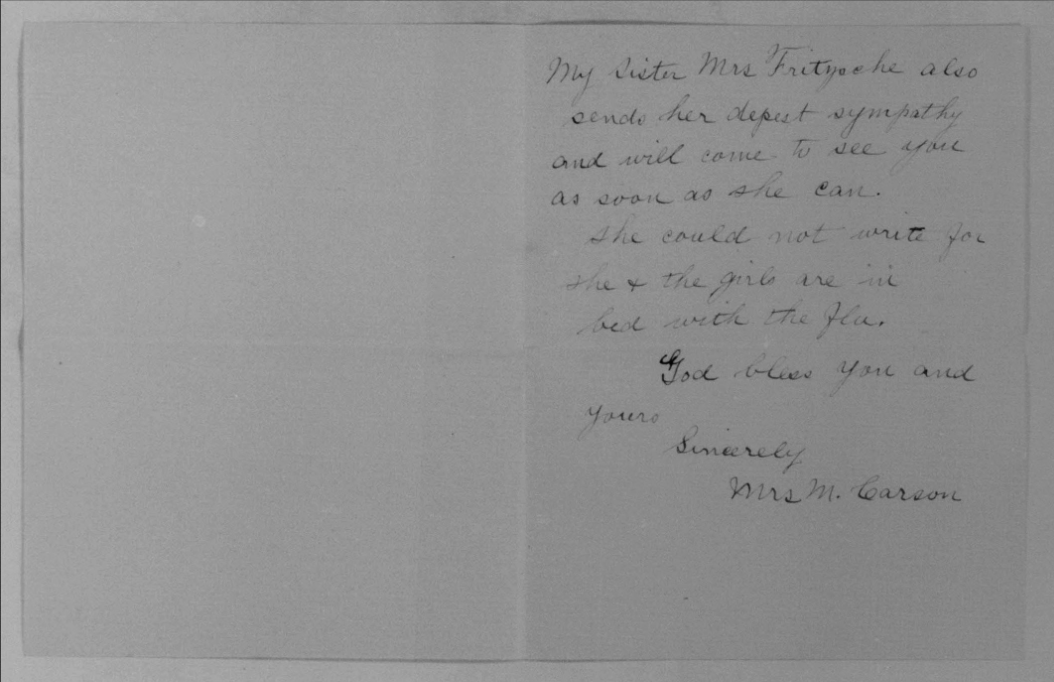 My Sister Mrs Fritzsche also
sends her depest sympathy
and will come to see you
as soon as she can.
She could not write for
she & the girls are in
bed with the flu.
God bless you and
yours
Sincerely
Mrs M. Carson